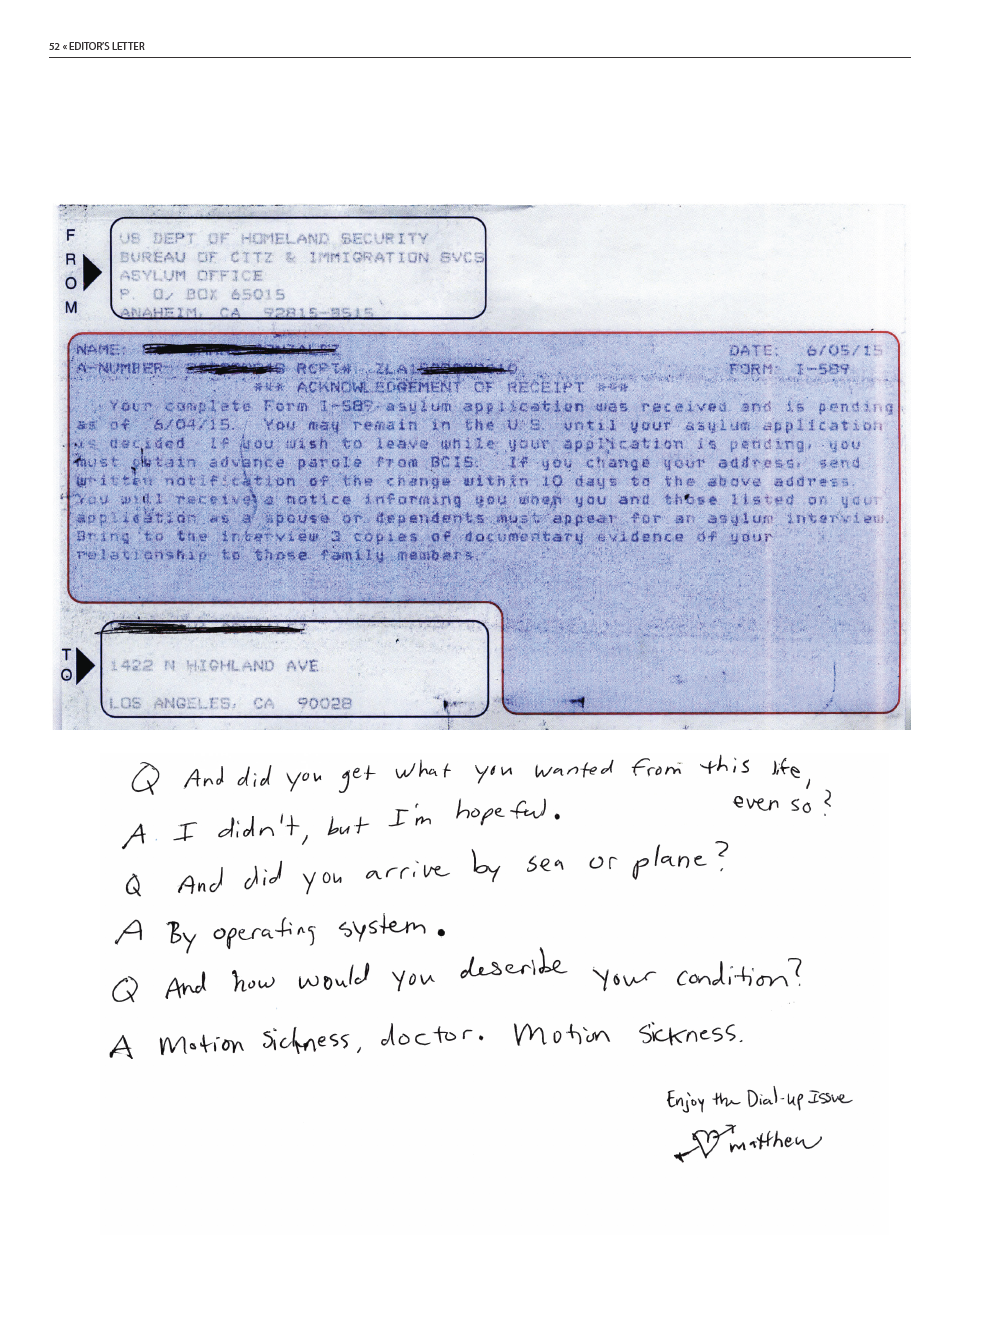 52 « EDITOR'S LETTER
FROM
US DEPT OF HOMELAND SECURITY
BUREAU OF CITZ & IMMIGRATION SVCS
ASYLUM OFFICE
P. O. BOX 65015
ANAHEIM, CA 92815-8515
NAME: DATE: 6/05/15
A-NUMBER RCPT#: ZLA1 FORM: I-589
*** ACKNOWLEDGEMENT OF RECEIPT ***
Your complete Form I-589 asylum application was received and is pending
as of 6/04/15. You may remain in the U.S. until your asylum application
is decided. If you wish to leave while your application is pending, you
must obtain advance parole from BCIS. If you change your address, send
written notification of the change within 10 days to the above address.
You will receive a notice informing you when you and those listed on your
application as a spouse or dependents must appear for an asylum interview.
Bring to the interview 3 copies of documentary evidence of your
relationship to those family members.
TO
1422 N HIGHLAND AVE
LOS ANGELES, CA 90028
Q And did you get what you wanted from this life,
even so?
A. I didn't, but I'm hopeful.
Q And did you arrive by sea or plane?
A By operating system.
Q And how would you describe your condition?
A Motion Sickness, doctor. Motion Sickness.
Enjoy the Dial-up Issue
matthew